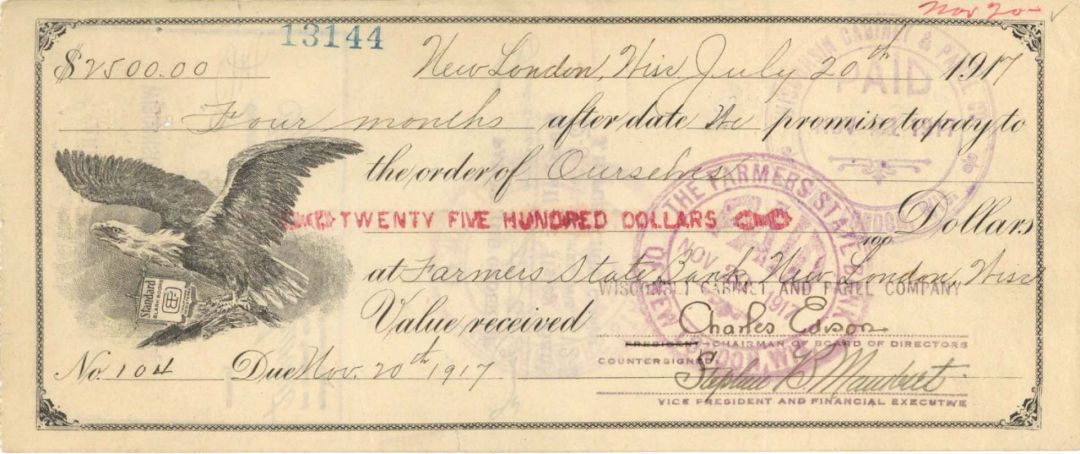 Nov 20 - ✓
13144
$2500.00 New London, Wisc July 20th 1917
Four months after date We promise to pay to
the order of Ourselves
TWENTY FIVE HUNDRED DOLLARS 100 Dollars
at Farmers State Bank, New London, Wisc
WISCONSIN CABINET AND PANEL COMPANY
Value received Charles Edison
PRESIDENT - CHAIRMAN OF BOARD OF DIRECTORS
COUNTERSIGNED
No. 104 Due Nov. 20th 1917 Stephen B. Mambert
VICE PRESIDENT AND FINANCIAL EXECUTIVE
Standard
WISCONSIN CABINET & PANEL CO.
PAID
THE FARMERS STATE BANK
PAID
NOV 20 1917